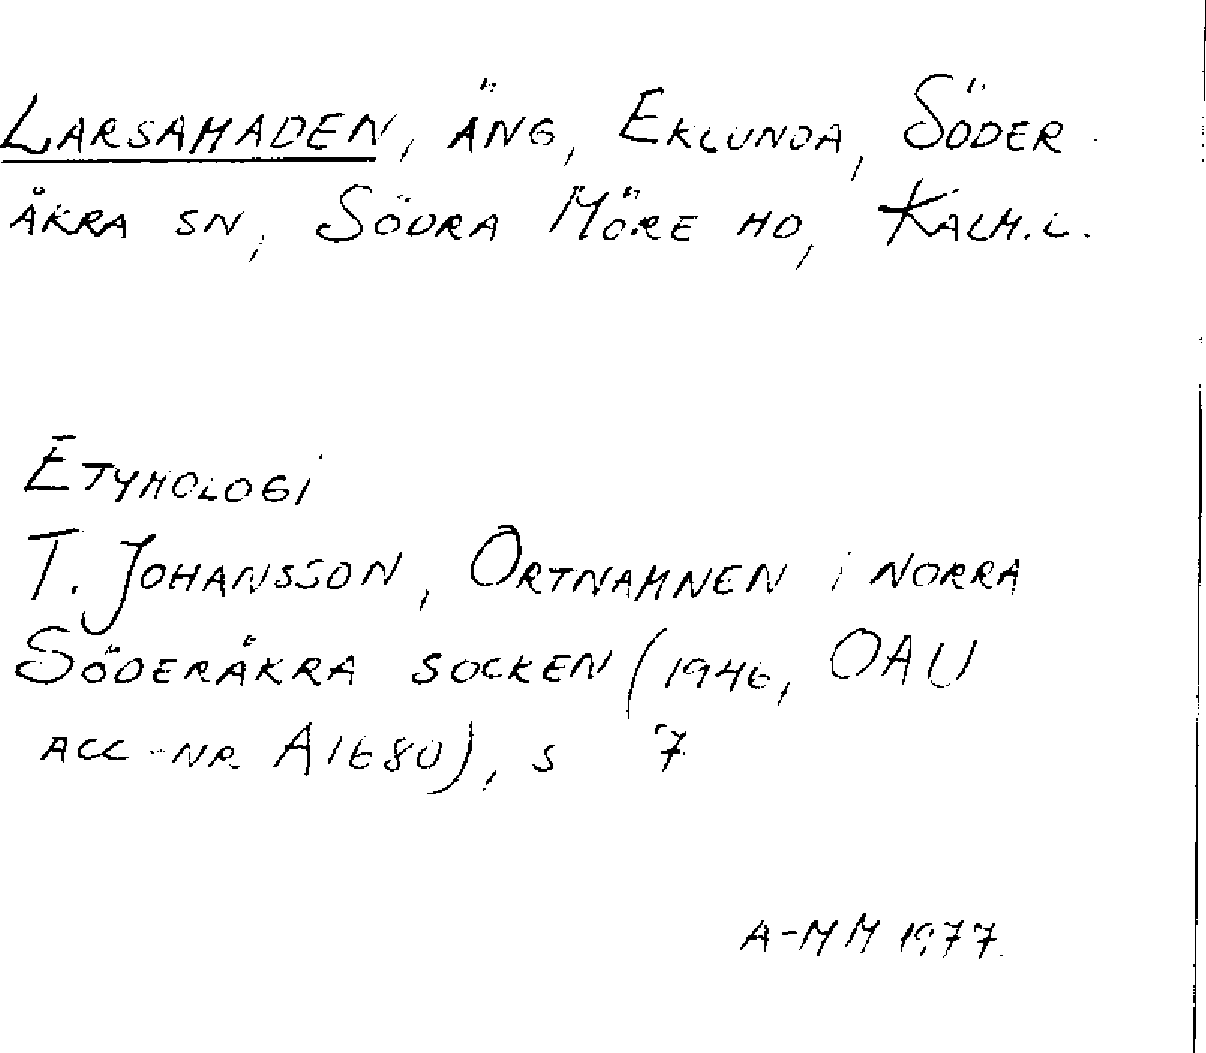 LARSAMADEN, ÄNG, EKLUNDA, SÖDER-
ÅKRA SN, SÖDRA MÖRE HD, KALM.L.
ETYMOLOGI
T. JOHANSSON, ORTNAMNEN i NORRA
SÖDERÅKRA SOCKEN (1946, OAU
ACC-NR A1680), S 7
A-MM 1977.